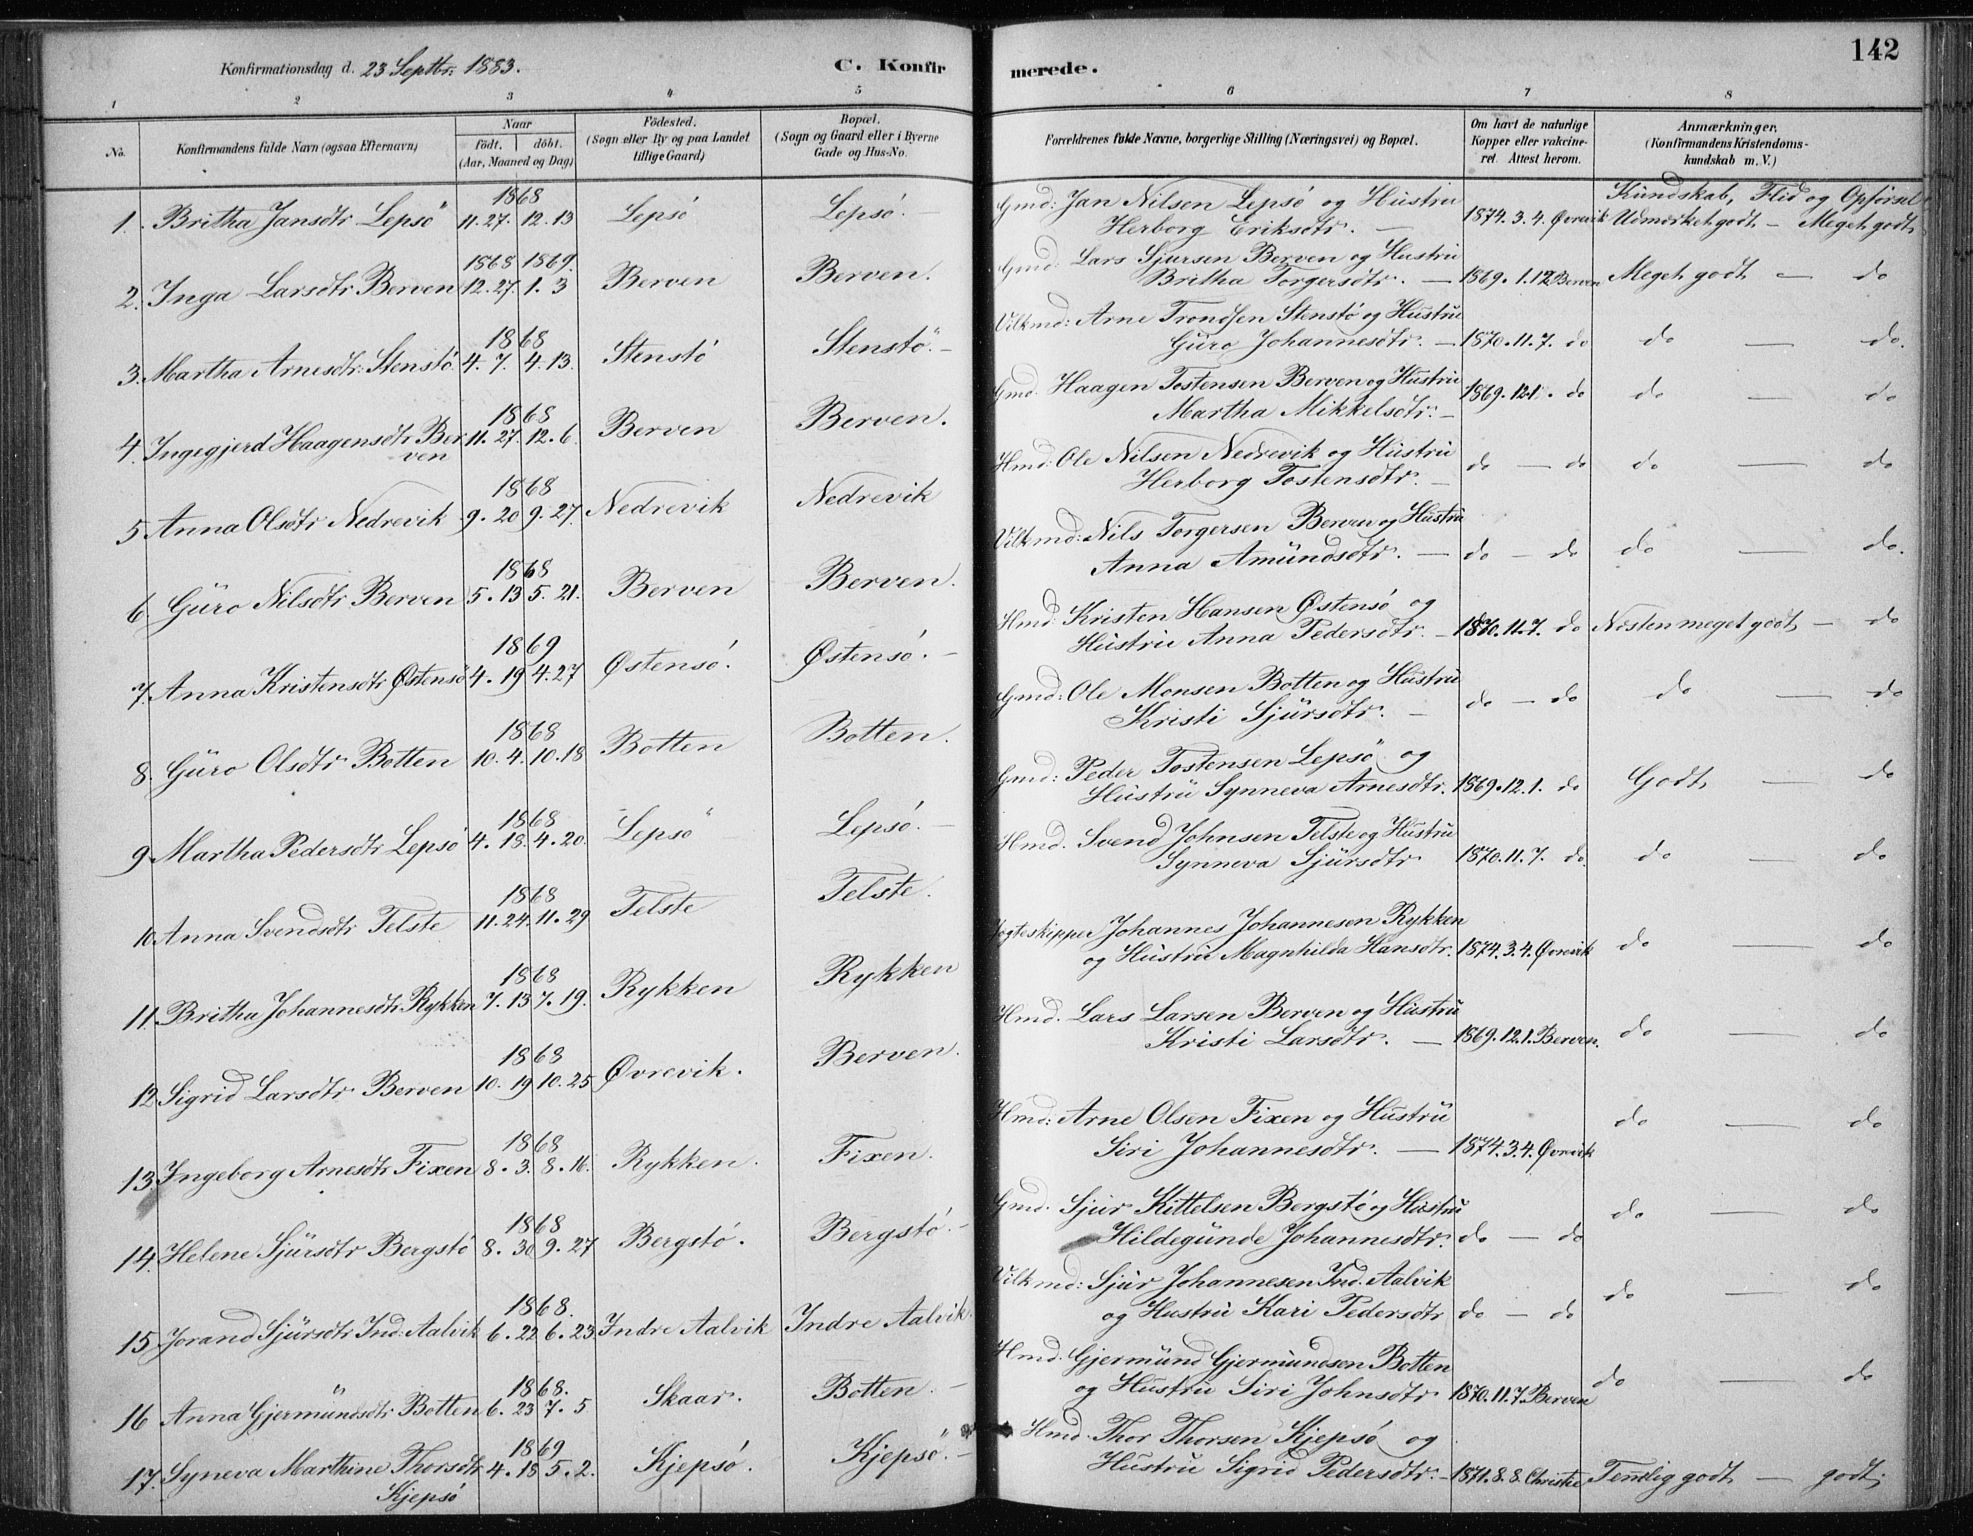 Konfirmationsdag d. 23 Septbr: 1883.
C. Konfir
merede.
142
1 2 3 4 5 6 7 8
No.
Konfirmandens fulde Navn (ogsaa Efternavn)
Naar
födt. döbt.
(Aar, Maaned og Dag)
Födested.
(Sogn eller By og paa Landet
tillige Gaard)
Bopæl.
(Sogn og Gaard eller i Byerne
Gade og Hus-No.
Forældrenes fulde Navne, borgerlige Stilling (Næringsvei) og Bopæl.
Om havt de naturlige
Kopper eller vakcine-
ret. Attest herom.
Anmærkninger.
(Konfirmandens Kristendoms-
kundskab m. V.)
1868
1. Britha Jansdtr Lepsö 11.27. 12.13 Lepsö Lepsö. –
Gmd: Jan Nilsen Lepsö og Hustru
Herborg Eriksdtr. – 1874.3.4. Øvrevik
Kundskab, Flid og Opförsel
Udmærket godt – Meget godt
1868 1869.
2. Inga Larsdtr Berven 12.27. 1.3 Berven Berven.
Gmd: Lars Sjursen Berven og Hustru
Britha Torgersdtr. – 1869.1.12 Berven Meget godt – do
1868
3. Martha Arnesdtr. Stenstö 4.7. 4.13. Stenstö Stenstö. –
Vilkmd: Arne Trondsen Stenstö og Hustru
Guro Johannesdtr. – 1870.11.7. do do – do.
1868
4. Ingegjerd Haagensdtr Ber
ven 11.27. 12.6. Berven Berven.
Gmd. Haagen Tostensen Berven og Hustru
Martha Mikkelsdtr. – 1869.12.1. do do – do
1868
5 Anna Olsdtr Nedrevik 9.20 9.27. Nedrevik Nedrevik
Hmd: Ole Nilsen Nedrevik og Hustru
Herborg Tostensdtr. – do – do do – do
1868
6. Guro Nilsdtr Berven 5.13 5.21. Berven Berven.
Vilkmd: Nils Torgersen Berven og Hustru
Anna Amundsdtr. – do – do do – do.
1869
7. Anna Kristensdtr Østensö 4.19 4.27 Østensö. Østensö. –
Hmd: Kristen Hansen Østensö og
Hustru Anna Pedersdtr. – 1870.11.7. do Næsten meget godt – do
1868
8. Guro Olsdtr Botten 10.4. 10.18 Botten Botten.
Gmd: Ole Monsen Botten og Hustru
Kristi Sjursdtr. – do – do do – do
1868
9 Martha Pedersdtr Lepsö 4.18. 4.20. Lepsö Lepsö. –
Gmd: Peder Tostensen Lepsö og
Hustru Synneva Arnesdtr. 1869.12.1. do Godt – do
1868
10. Anna Svendsdtr Telste 11.24. 11.29 Telste Telste.
Hmd. Svend Johnsen Telste og Hustru
Synneva Sjursdtr 1870.11.7. do. do – do
1868
11. Britha Johannesdtr Rykken 7.13 7.19. Rykken Rykken
Jagteskipper Johannes Johannesen Rykken
og Hustru Magnhilda Hansdtr. 1874.3.4. Øvrevik do – do
1868
12 Sigrid Larsdtr Berven 10.19 10.25 Øvrevik. Berven.
Hmd. Lars Larsen Berven og Hustru
Kristi Larsdtr. – 1869.12.1. Berven. do – do
1868
13. Ingeborg Arnesdtr Fixen 8.3. 8.16. Rykken. Fixen.
Hmd: Arne Olsen Fixen og Hustru
Siri Johannesdtr. – 1874.3.4. Øvrevik do – do
1868
14. Helene Sjursdtr Bergstö 8.30 9.27 Bergstö. Bergstö. –
Gmd. Sjur Kittelsen Bergstö og Hustru
Hildegunde Johannesdtr. do – do do – do
1868.
15. Jorand Sjursdtr Ind: Aalvik 6.22 6.23 Indre Aalvik Indre Aalvik.
Vilkmd: Sjur Johannesen Ind. Aalvik
og Hustru Kari Pedersdtr do – do do – do
1868.
16 Anna Gjermundsdtr Botten 6.23 7.5 Skaar. Botten. –
Hmd. Gjermund Gjermundsen Botten
og Hustru Siri Johnsdtr 1870.11.7. Berven do – do
1869
17. Syneva Marthine Thorsdtr
Kjepsö 4.18 5.2. Kjepsö. Kjepsö. –
Hmd. Thor Thorsen Kjepsö og
Hustru Sigrid Pedersdtr. – 1871.8.8. Christie Temlig godt – godt.